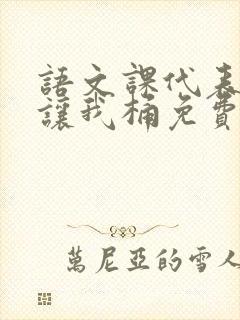 語文課代表
讓我桶免費
萬尼亞的雪人